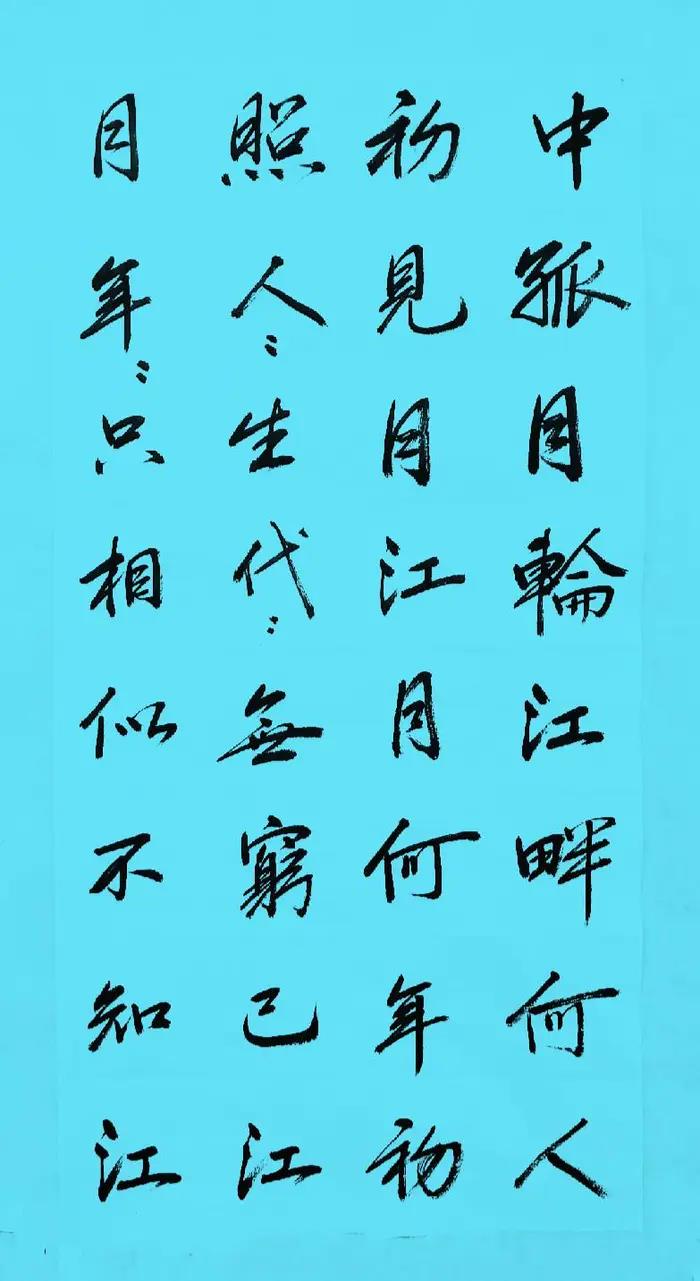 中孤月輪江畔何人
初見月江月何年初
照人〻生代〻無窮己江
月年〻只相似不知江